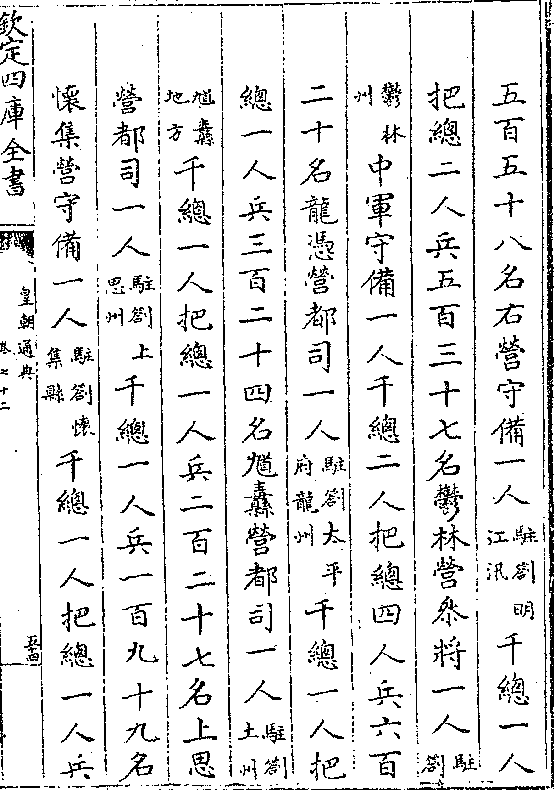 五百五十八名右營守備一人駐劄明江汛千總一人
把總二人兵五百三十七名鬱林營叅將一人駐劄
鬱林州中軍守備一人千總二人把總四人兵六百
二十名龍憑營都司一人駐劄太平府龍州千總一人把
總一人兵三百二十四名馗纛營都司一人駐劄土州
馗纛地方千總一人把總一人兵二百二十七名上思
營都司一人駐劄上思州千總一人兵一百九十九名
懷集營守備一人駐劄懷集縣千總一人把總一人兵
欽定四庫全書
皇朝通典
卷七十二